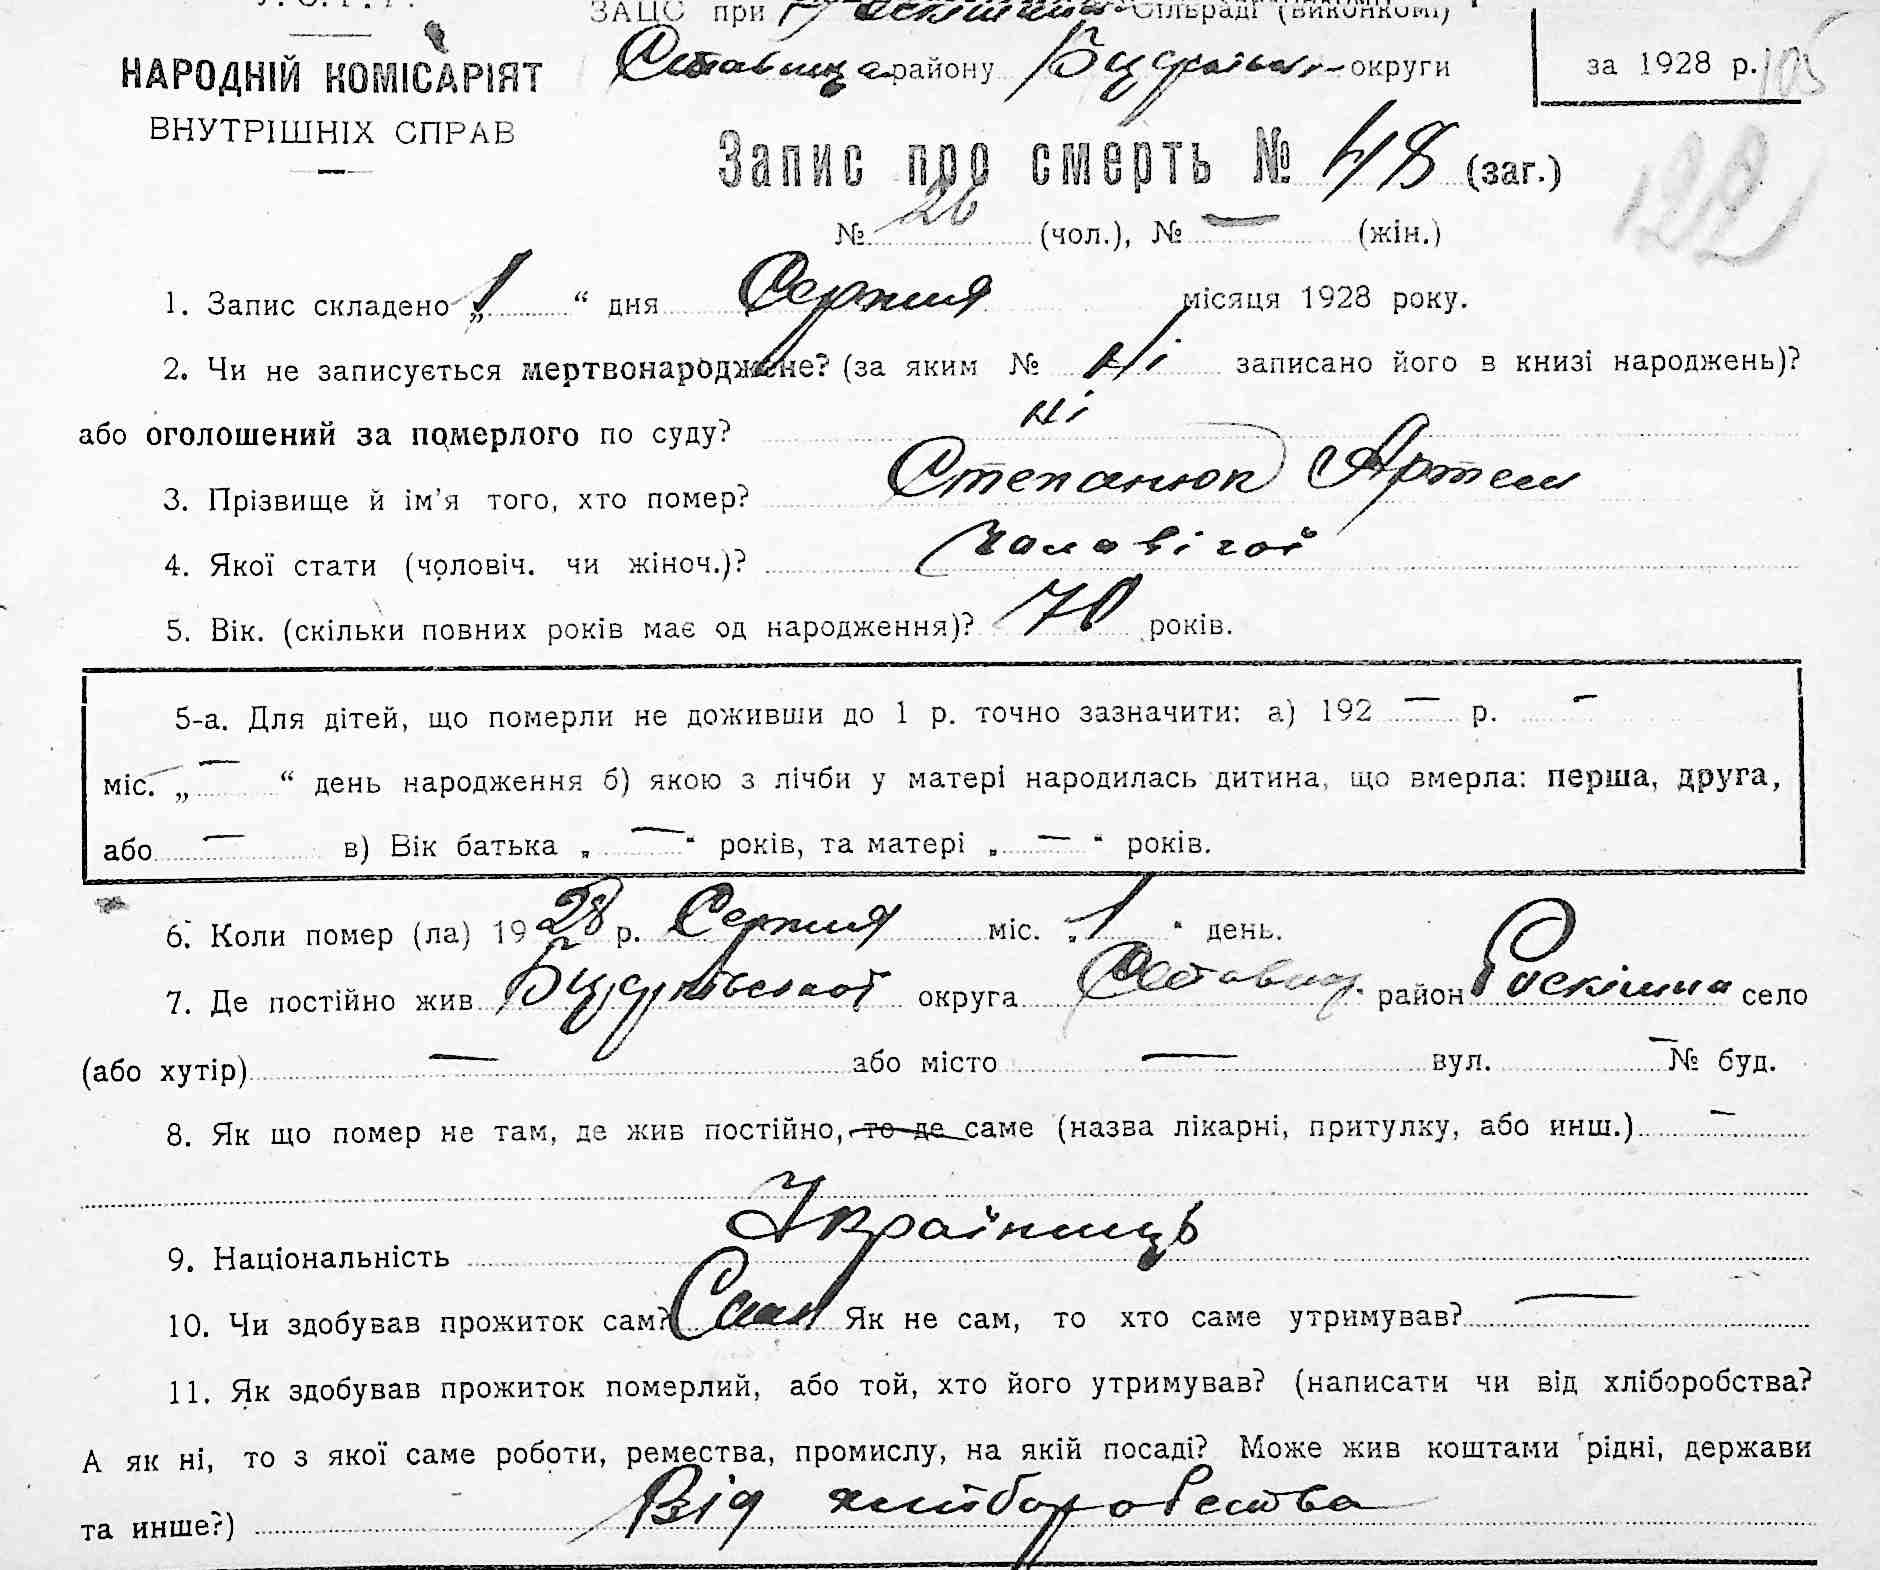 У.С.Р.Р.
ЗАЦС при Сільраді (виконкомі)
НАРОДНІЙ КОМІСАРІЯТ
ВНУТРІШНІХ СПРАВ
району округи
за 1928 р. 105
Запис про смерть № 48 (заг.)
122
№ 26 (чол.), № — (жін.)
1. Запис складено „ 1 “ дня Серпня місяця 1928 року.
2. Чи не записується мертвонароджене? (за яким № ні записано його в книзі народжень)?
або оголошений за померлого по суду? ні
3. Прізвище й ім'я того, хто помер? Степанюк Артем
4. Якої стати (чоловіч. чи жіноч.)? чоловічої
5. Вік. (скільки повних років має од народження)? 70 років.
5-а. Для дітей, що померли не доживши до 1 р. точно зазначити: а) 192 — р. —
міс. „ — “ день народження б) якою з лічби у матері народилась дитина, що вмерла: перша, друга,
або — в) Вік батька „ — “ років, та матері „ — “ років.
6. Коли помер (ла) 1928 р. Серпня міс. „ 1 “ день.
7. Де постійно жив округа Ставищ. район Роскішна село
(або хутір) — або місто — вул. — № буд.
8. Як що помер не там, де жив постійно, то де саме (назва лікарні, притулку, або инш.) —
9. Національність Українець
10. Чи здобував прожиток сам? Сам Як не сам, то хто саме утримував? —
11. Як здобував прожиток померлий, або той, хто його утримував? (написати чи від хліборобства?
А як ні, то з якої саме роботи, ремества, промислу, на якій посаді? Може жив коштами рідні, держави
та инше?) Від хліборобства